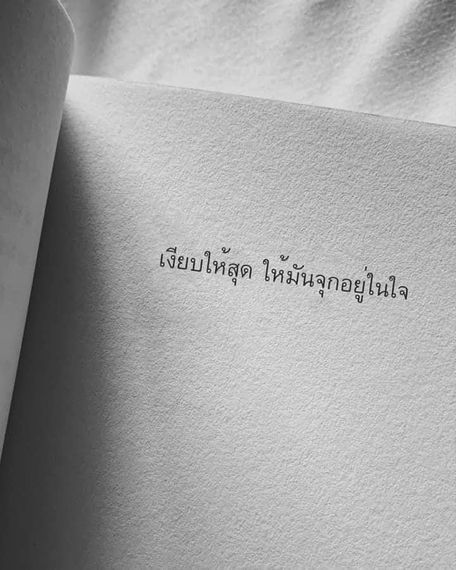 เงียบให้สุด ให้มันจุกอยู่ในใจ